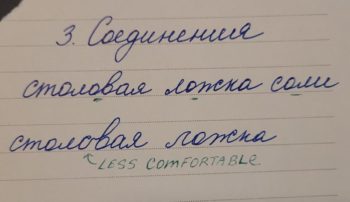 3. Соединения
столовая ложка соли
столовая ложка
LESS COMFORTABLE